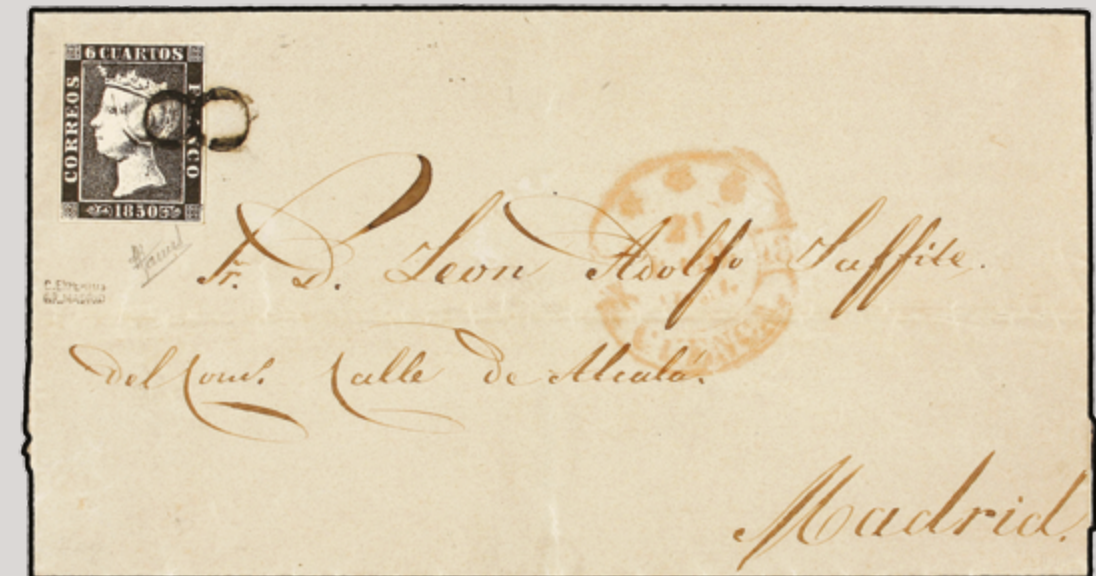 6 CUARTOS
CORREOS
FRANCO
1850
21
CUENCA
Sr. D. Leon Adolfo Laffite.
del Com.º Calle de Alcala.
Madrid.